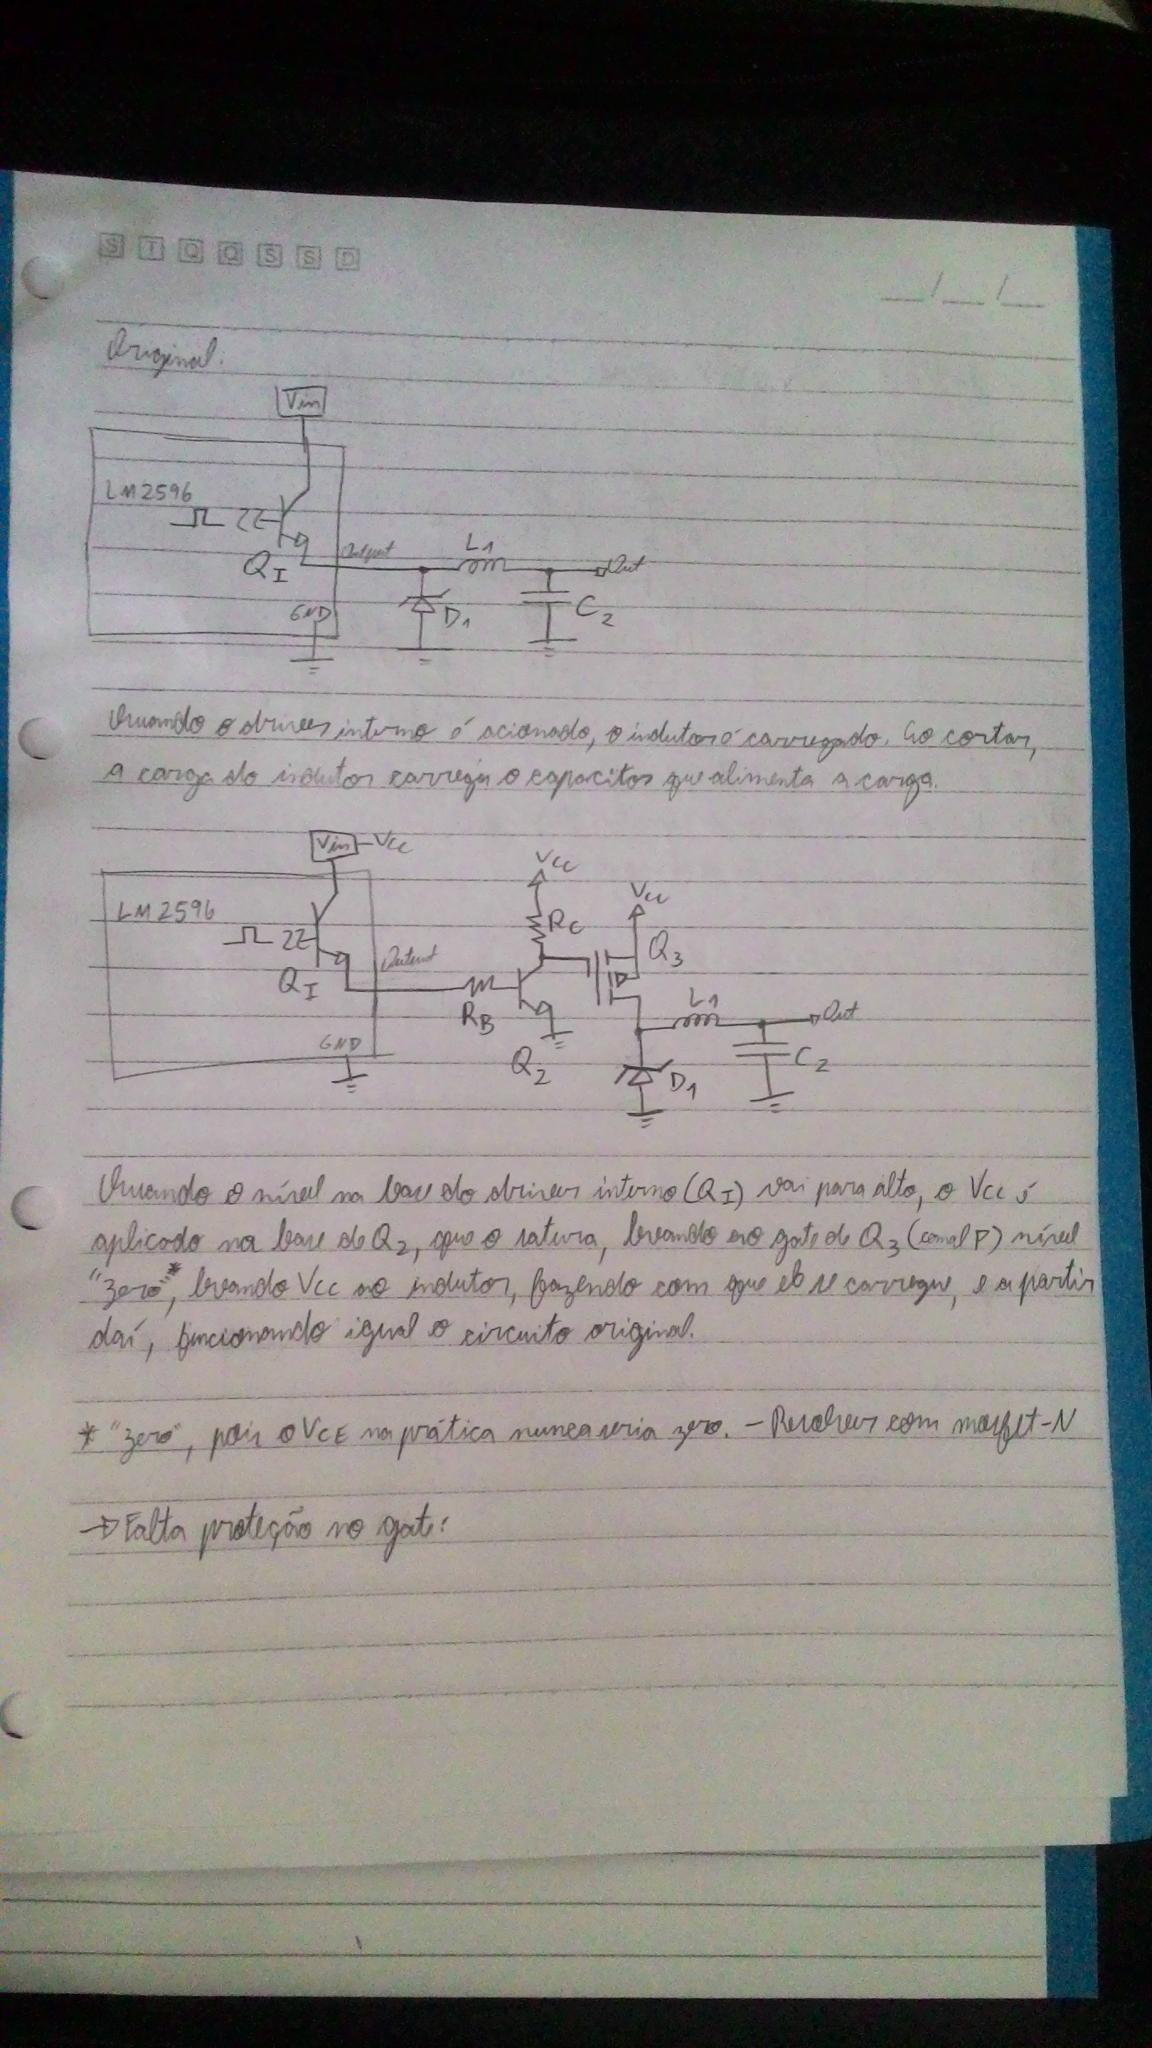 S T Q Q S S D
__/__/__
Original:
Vin
LM2596
QI
Output
L1
Out
GND
D1
C2
Quando o driver interno é acionado, o indutor é carregado. Ao cortar,
a carga do indutor carrega o capacitor que alimenta a carga.
Vin - Vcc
LM2596
QI
Output
Vcc
RC
Vcc
Q3
RB
L1
Out
GND
Q2
D1
C2
Quando o nível na base do driver interno (QI) vai para alto, o Vcc é
aplicado na base de Q2, que o satura, levando ao gate de Q3 (canal P) nível
"zero"*, levando Vcc ao indutor, fazendo com que ele se carregue, e a partir
daí, funcionando igual o circuito original.
* "zero", pois o VCE na prática nunca seria zero. - Resolver com mosfet-N
→ Falta proteção no gate!